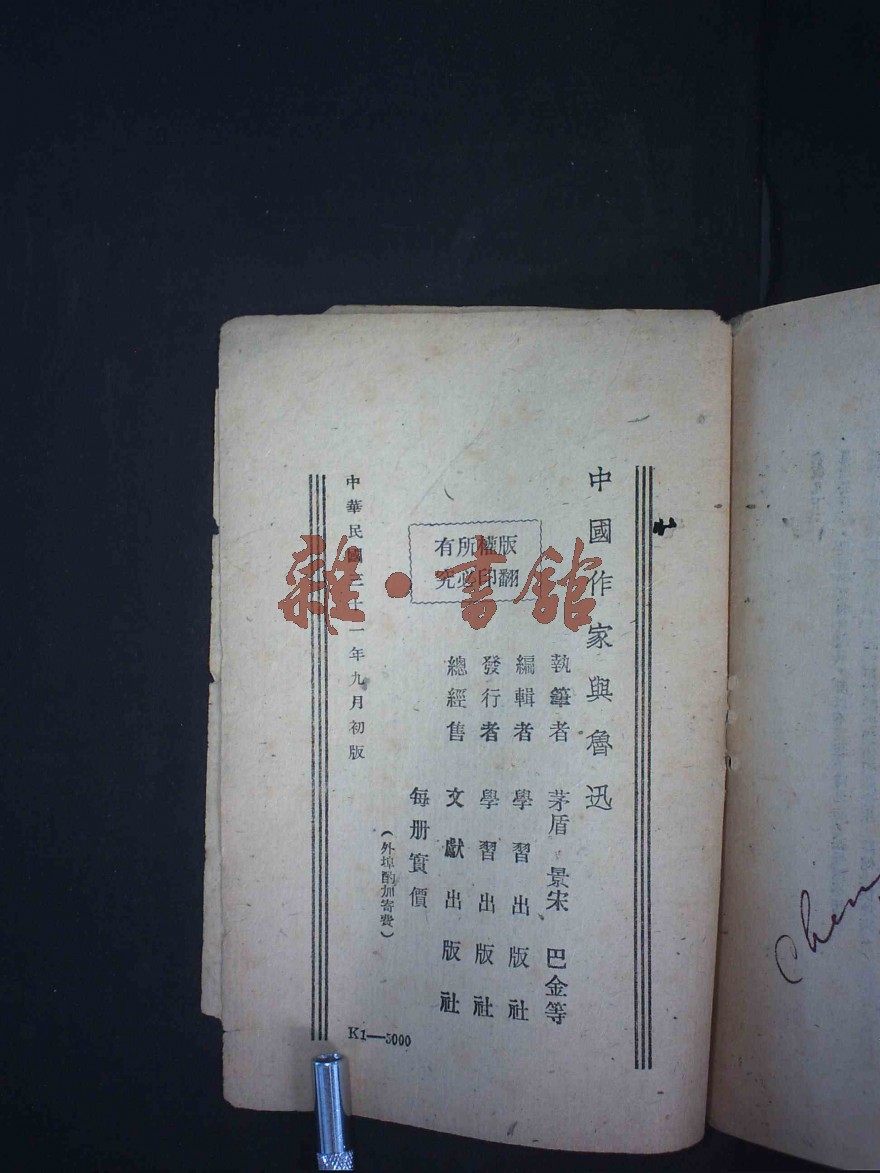 中國作家與魯迅
執筆者 茅盾 景宋 巴金等
編輯者 學習出版社
發行者 學習出版社
總經售 文獻出版社
版權所有
翻印必究
每册實價
（外埠酌加寄費）
中華民國三十一年九月初版
K1—3000
雜·書舘
Chen